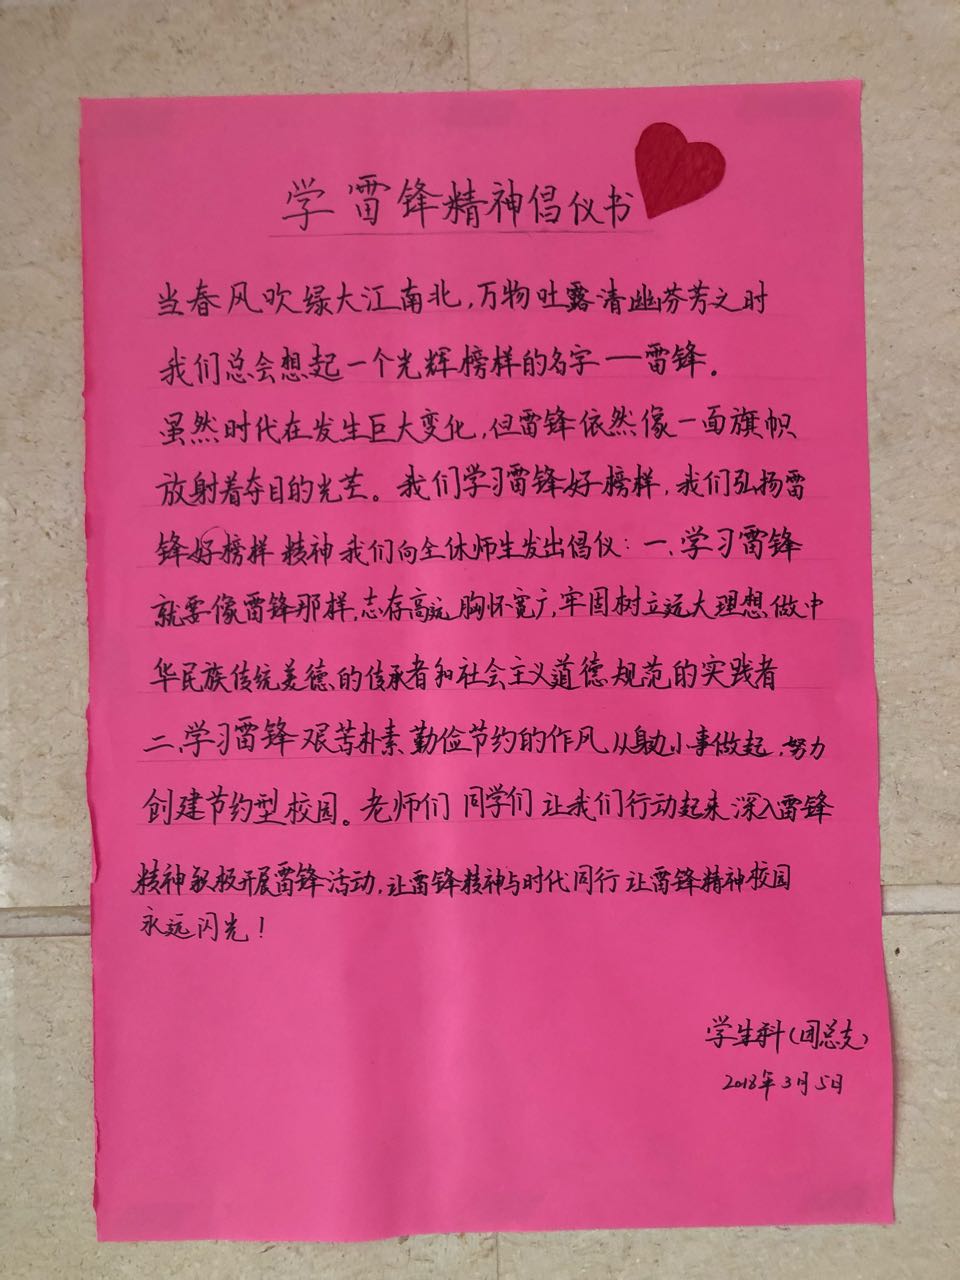 学雷锋精神倡仪书
当春风吹绿大江南北,万物吐露清幽芬芳之时
我们总会想起一个光辉榜样的名字——雷锋。
虽然时代在发生巨大变化,但雷锋依然像一面旗帜
放射着夺目的光芒。我们学习雷锋好榜样,我们弘扬雷
锋好榜样精神我们向全体师生发出倡仪:一、学习雷锋
就要像雷锋那样,志存高远胸怀宽广,牢固树立远大理想做中
华民族传统美德的传承者和社会主义道德规范的实践者
二、学习雷锋艰苦朴素勤俭节约的作风,从身边小事做起,努力
创建节约型校园。老师们同学们让我们行动起来深入雷锋
精神积极开展雷锋活动,让雷锋精神与时代同行让雷锋精神校园
永远闪光!
学生科(团总支)
2018年3月5日